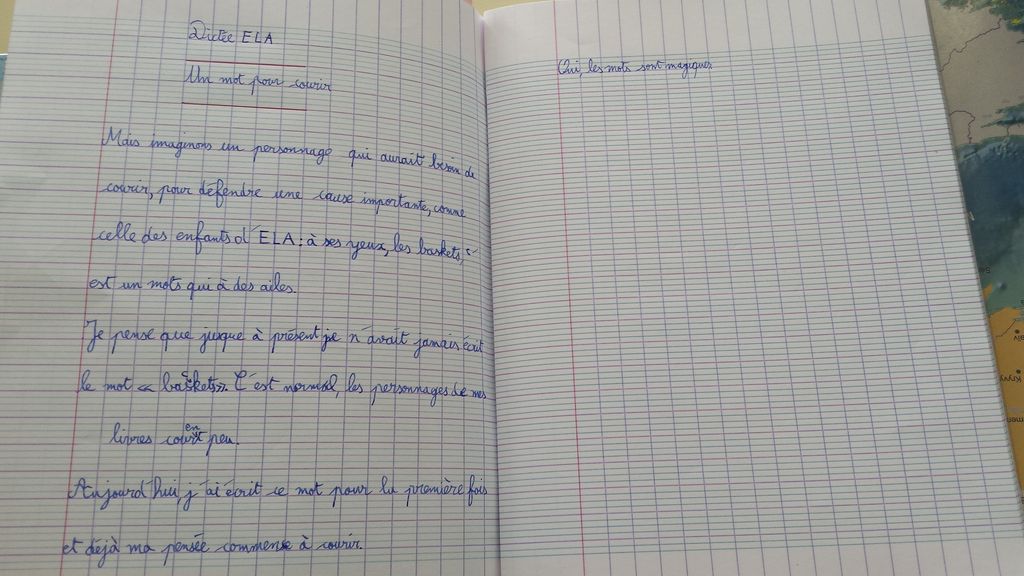 Dictée ELA
Un mot pour courir
Mais imaginons un personnage qui aurait besoin de
courir, pour défendre une cause importante, comme
celle des enfants d'ELA : à ses yeux, les baskets, c'
est un mots qui à des ailes.
Je pense que jusque à présent je n'avait jamais écrit
le mot « baskets ». C'est normal, les personnages de mes
livres courent peu.
Aujourd'hui, j'ai écrit ce mot pour la première fois
et déjà ma pensée commense à courir.
Oui, les mots sont magiques